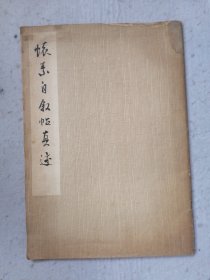 懷素自叙帖真迹